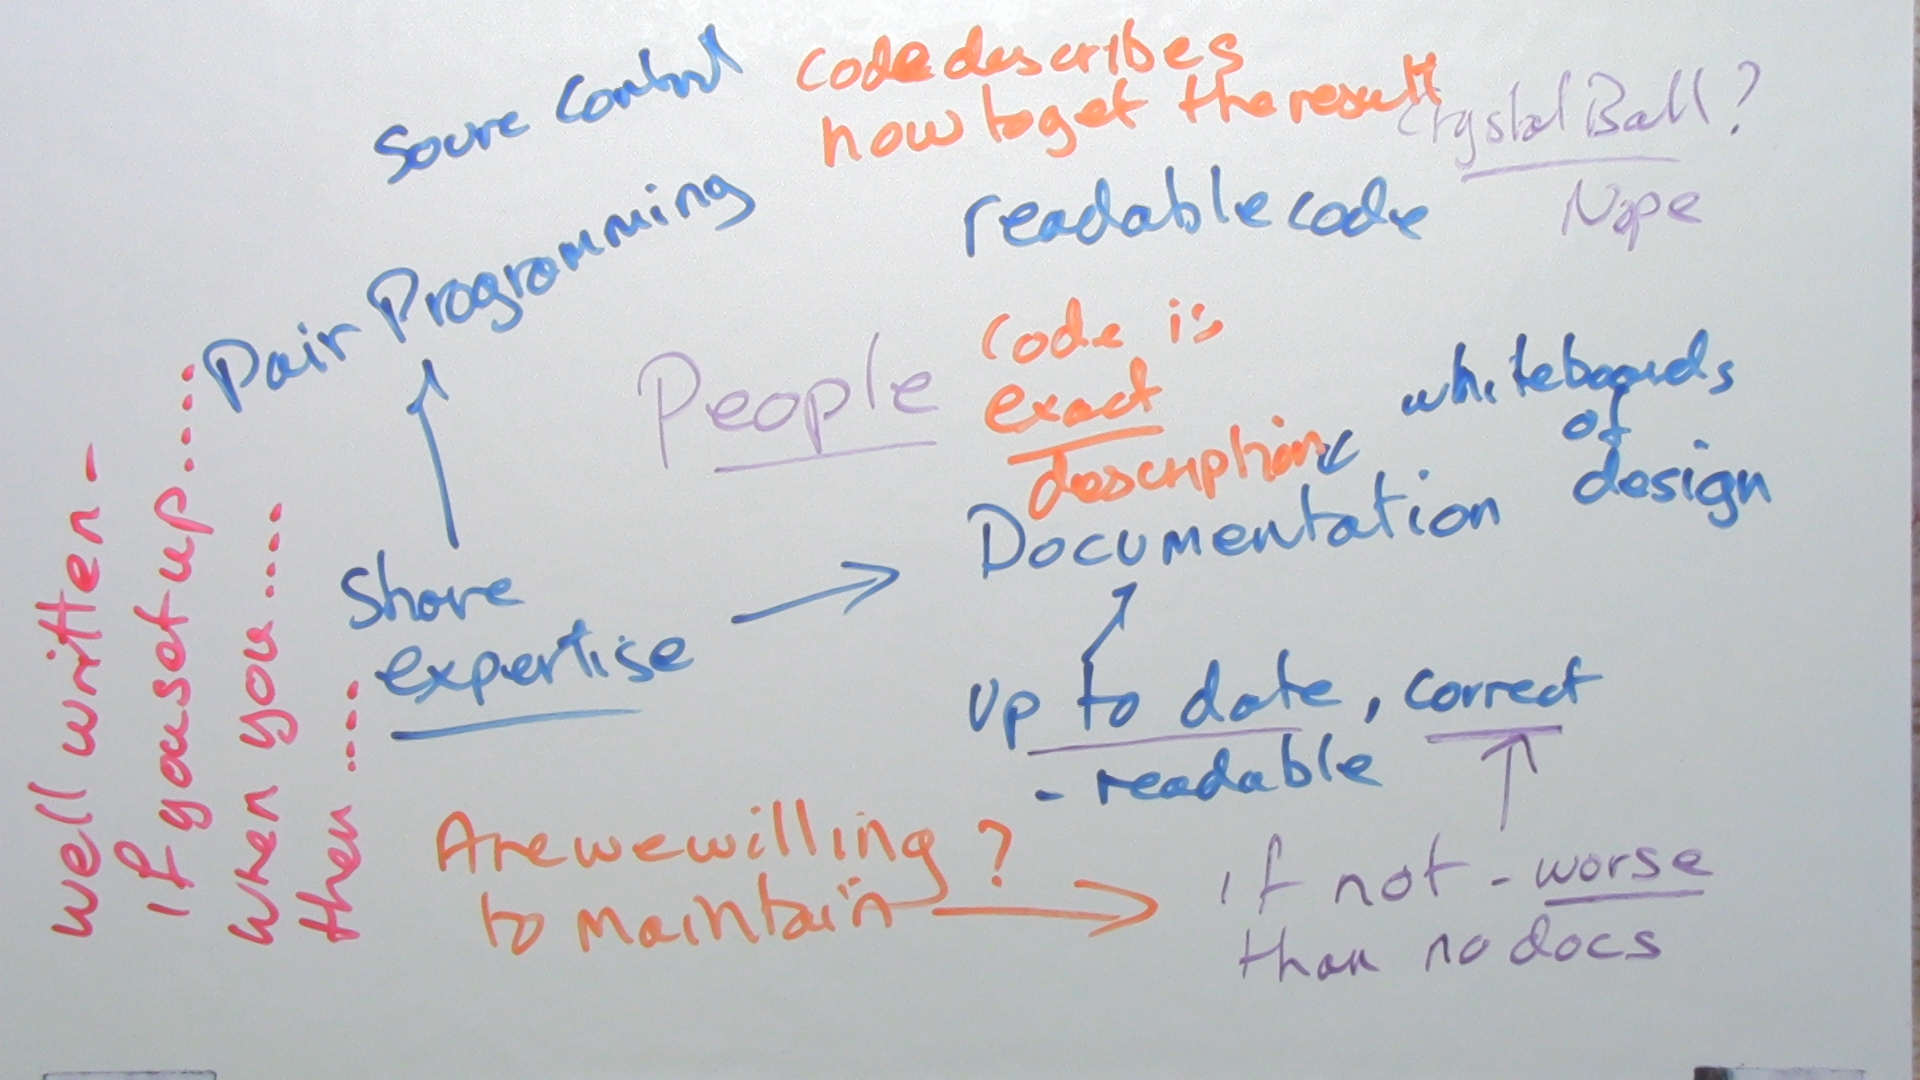 Source Control
Code describes
how to get the result
Crystal Ball?
Nope
readable code
Pair Programming
People
Code is
exact
description
whiteboards
of
design
Documentation
Share
expertise
up to date, correct
- readable
Are we willing ?
to maintain
if not - worse
than no docs
well written -
if you set up.....
when you....
then ....